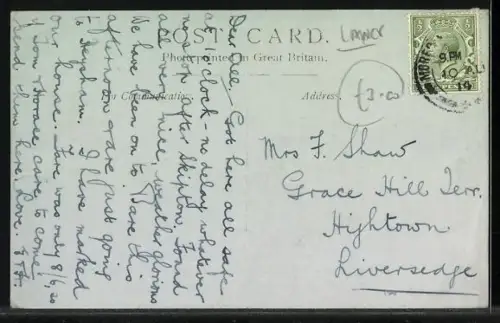 POST CARD.
Photo-printed in Great Britain.
For Communication.
Address.
LMNCR
£3.00
9 PM
10
19
Dear All, Got here all safe
at 1 o'clock - no delay whatever
no stop after Skipton. Found
all very nice, weather glorious
We have been on to Bare this
afternoon & are just going
to Heysham. I have marked
our house. Fare was only 8/6, so
if Tom & Horace care to come
send them here. Love.
Mrs F. Shaw
Grace Hill Terr.
Hightown
Liversedge